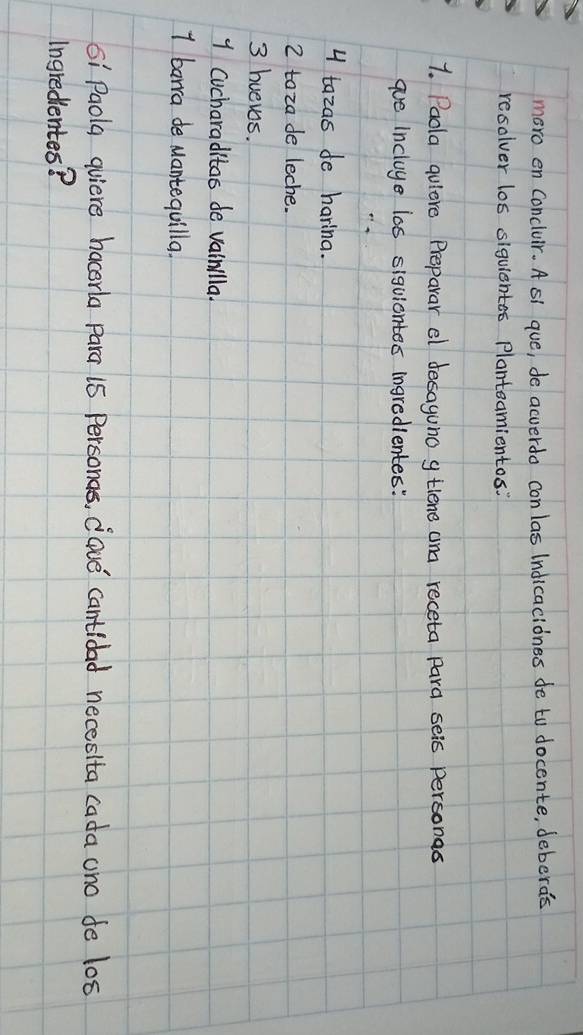 mero en concluir. A si que, de acuerdo con las indicaciones de tu docente, deberás
resolver los siguientes Planteamientos:
1. Paola quiere Preparar el desayuno y tiene una receta para seis personas
que incluye los siguientes ingredientes:
4 tazas de harina.
2 taza de leche.
3 huevos.
1 cucharaditas de vainilla.
1 barra de Mantequilla.
Si Paola quiere hacerla para 15 Personas, ¿Qué cantidad necesita cada uno de los
ingredientes?